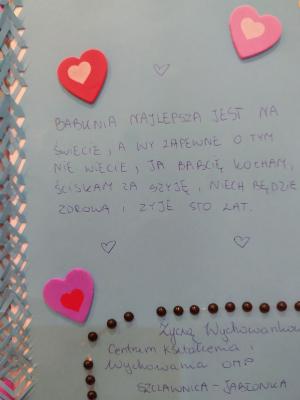 BABUNIA NAJLEPSZA JEST NA
ŚWIECIE, A WY ZAPEWNE O TYM
NIE WIECIE, JA BABCIĘ KOCHAM,
ŚCISKAM ZA SZYJĘ, NIECH BĘDZIE
ZDROWA I ŻYJE STO LAT.
Życzą Wychowankowie
Centrum Kształcenia i
Wychowania OHP
SZCZAWNICA - JABŁONKA